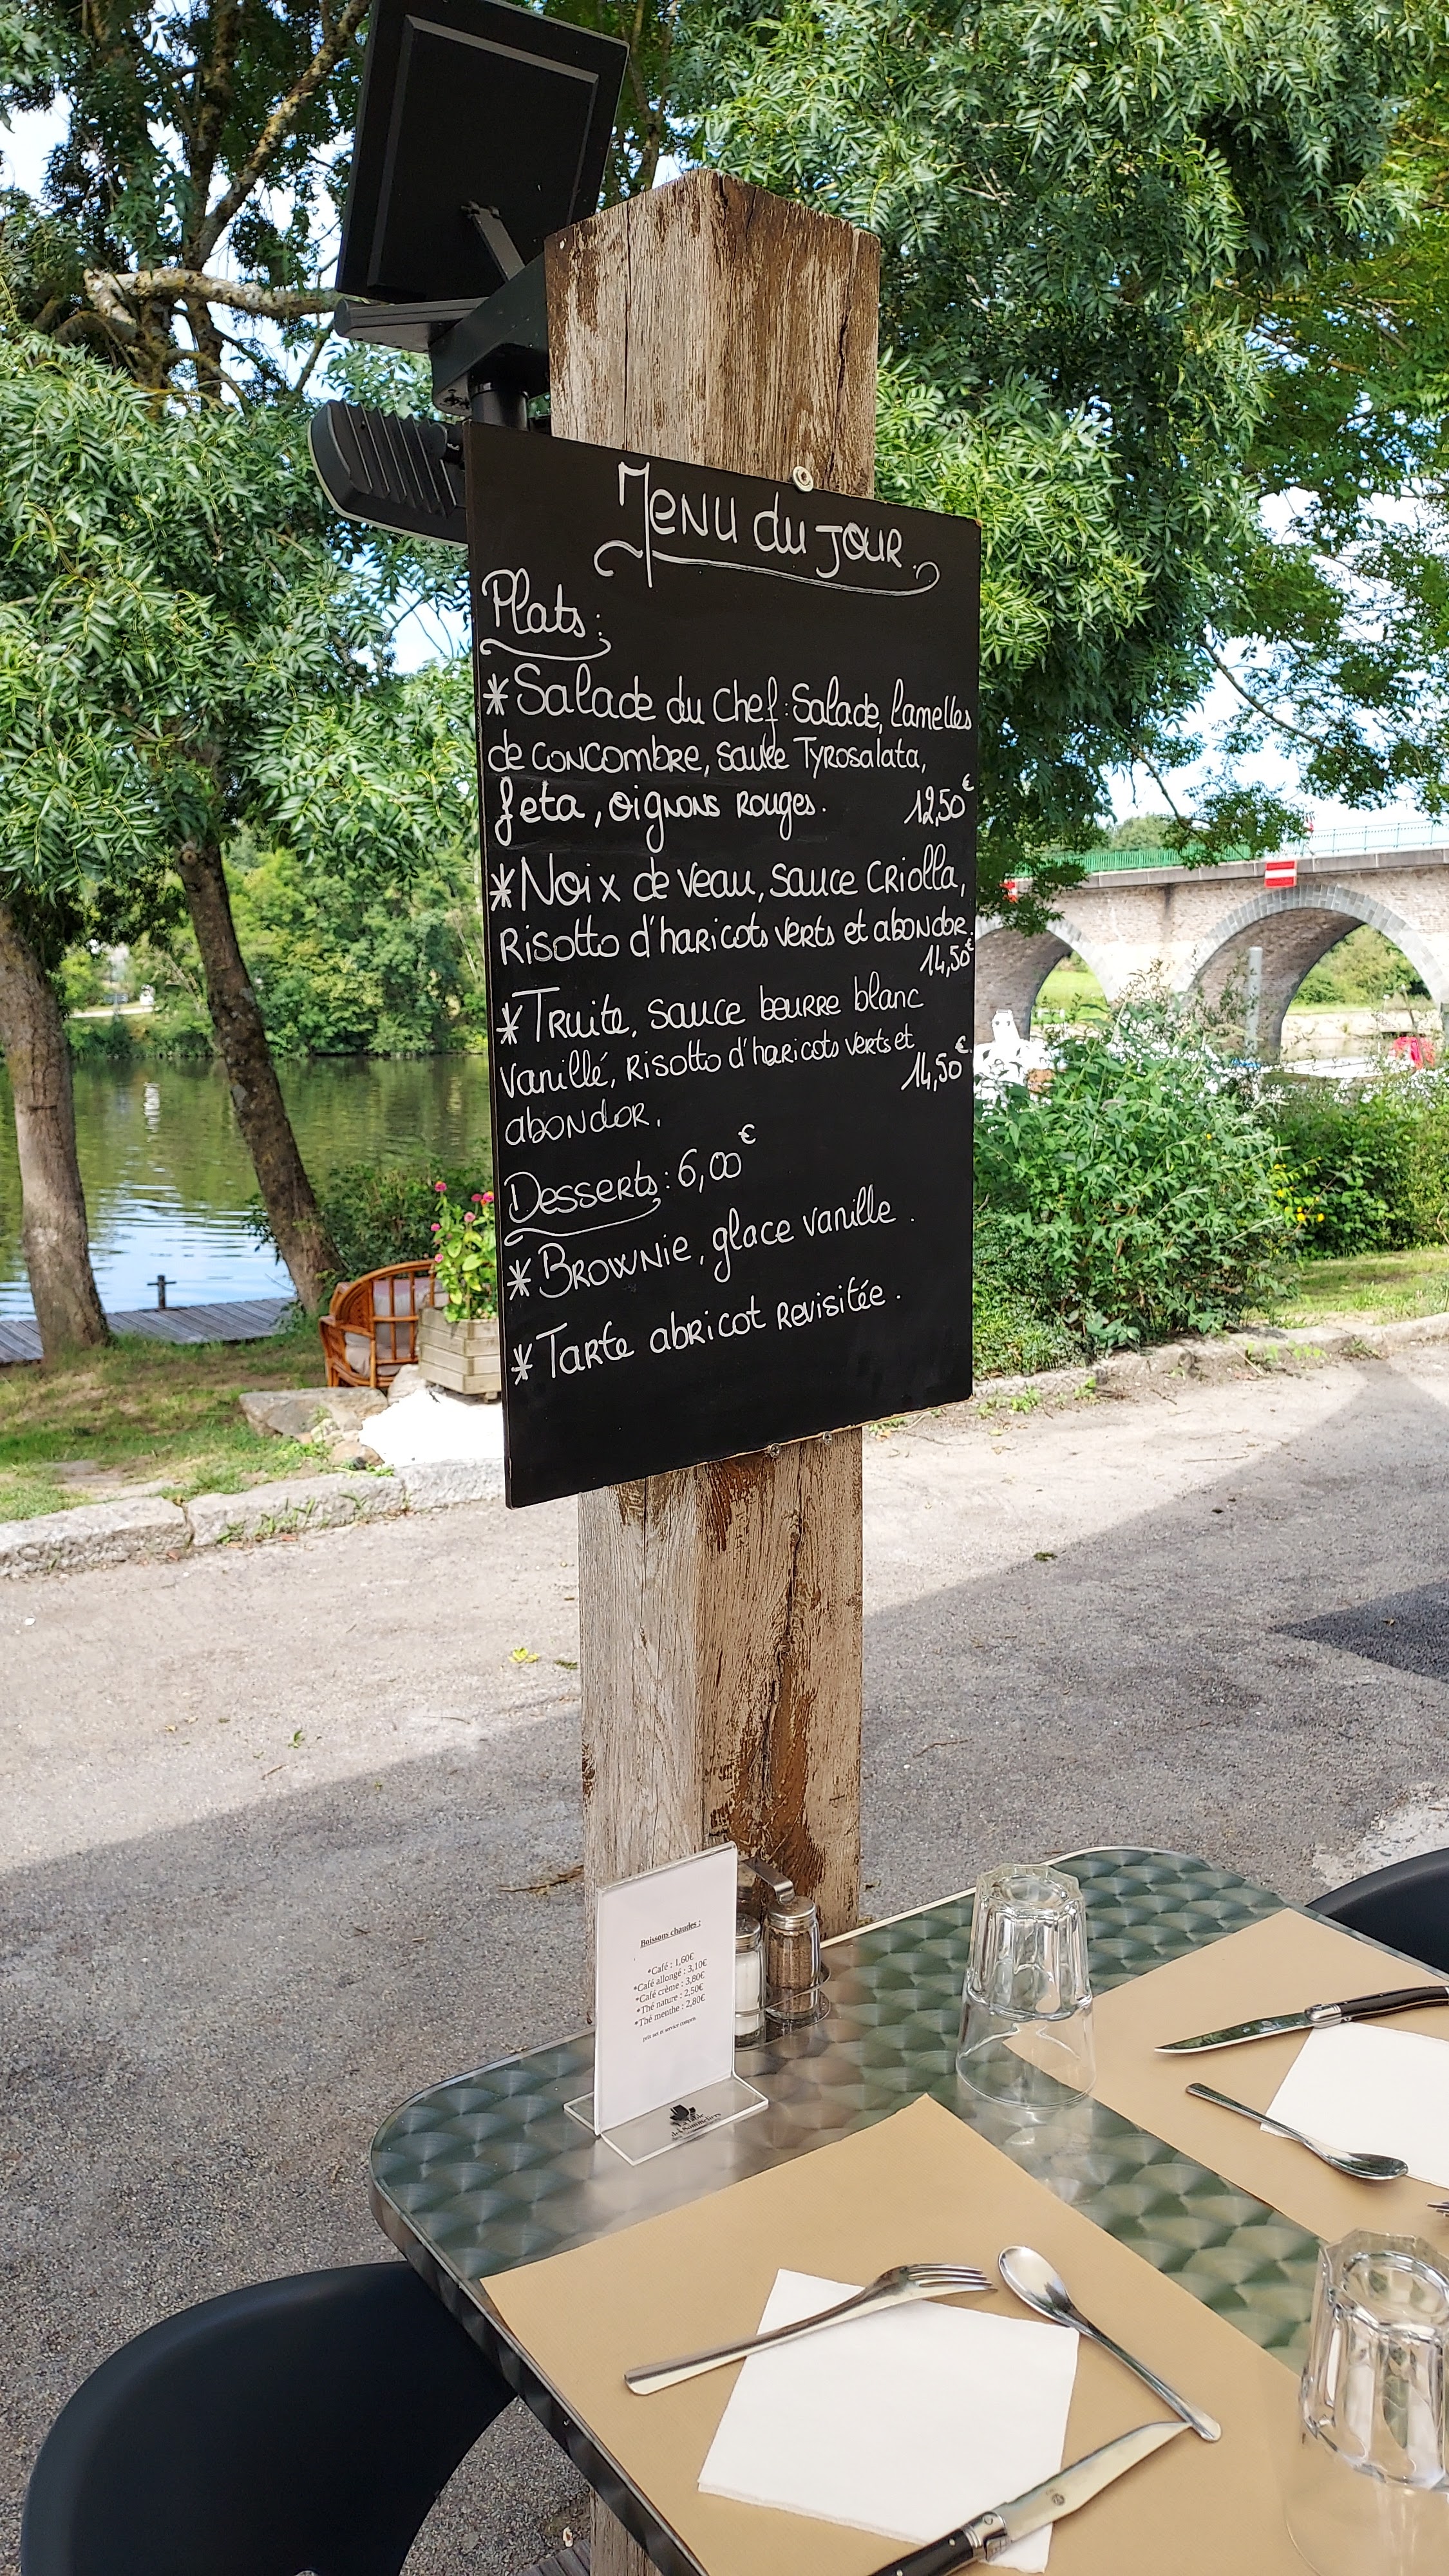 Menu du jour.
Plats:
*Salade du Chef: Salade, lamelles
de concombre, sauce Tyrosalata,
feta, oignons rouges. 12,50€
*Noix de veau, sauce criolla,
Risotto d'haricots verts et abondor.
14,50€
*Truite, sauce beurre blanc
vanillé, risotto d'haricots verts et
14,50€
abondor.
Desserts: 6,00€
*Brownie, glace vanille.
*Tarte abricot revisitée.
Boissons chaudes :
*Café : 1,60€
*Café allongé : 3,10€
*Café crème : 3,80€
*Thé nature : 2,50€
*Thé menthe : 2,80€
prix net et service compris
La Table
des Sommeliers